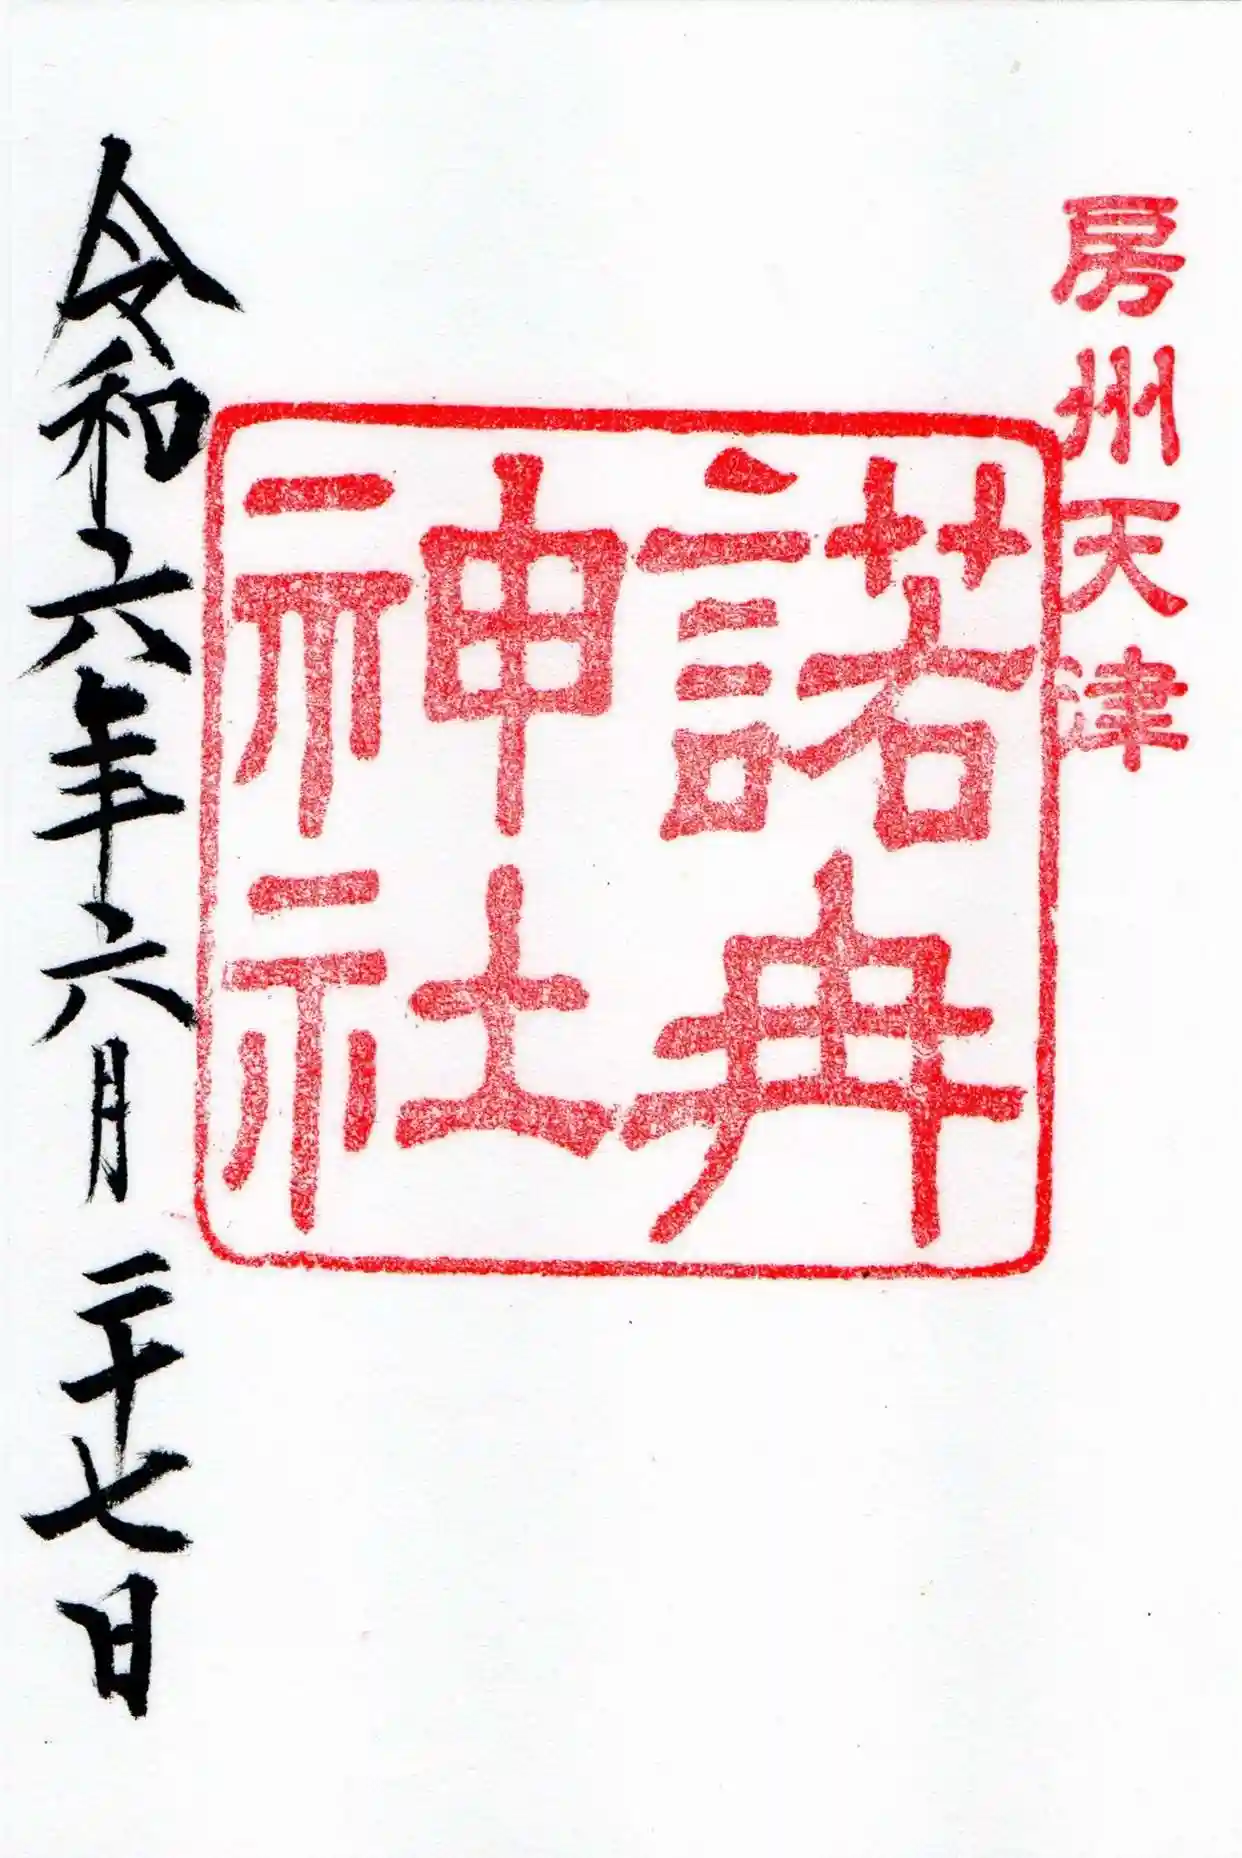 房州天津
諾冉
神社
令和六年六月二十七日